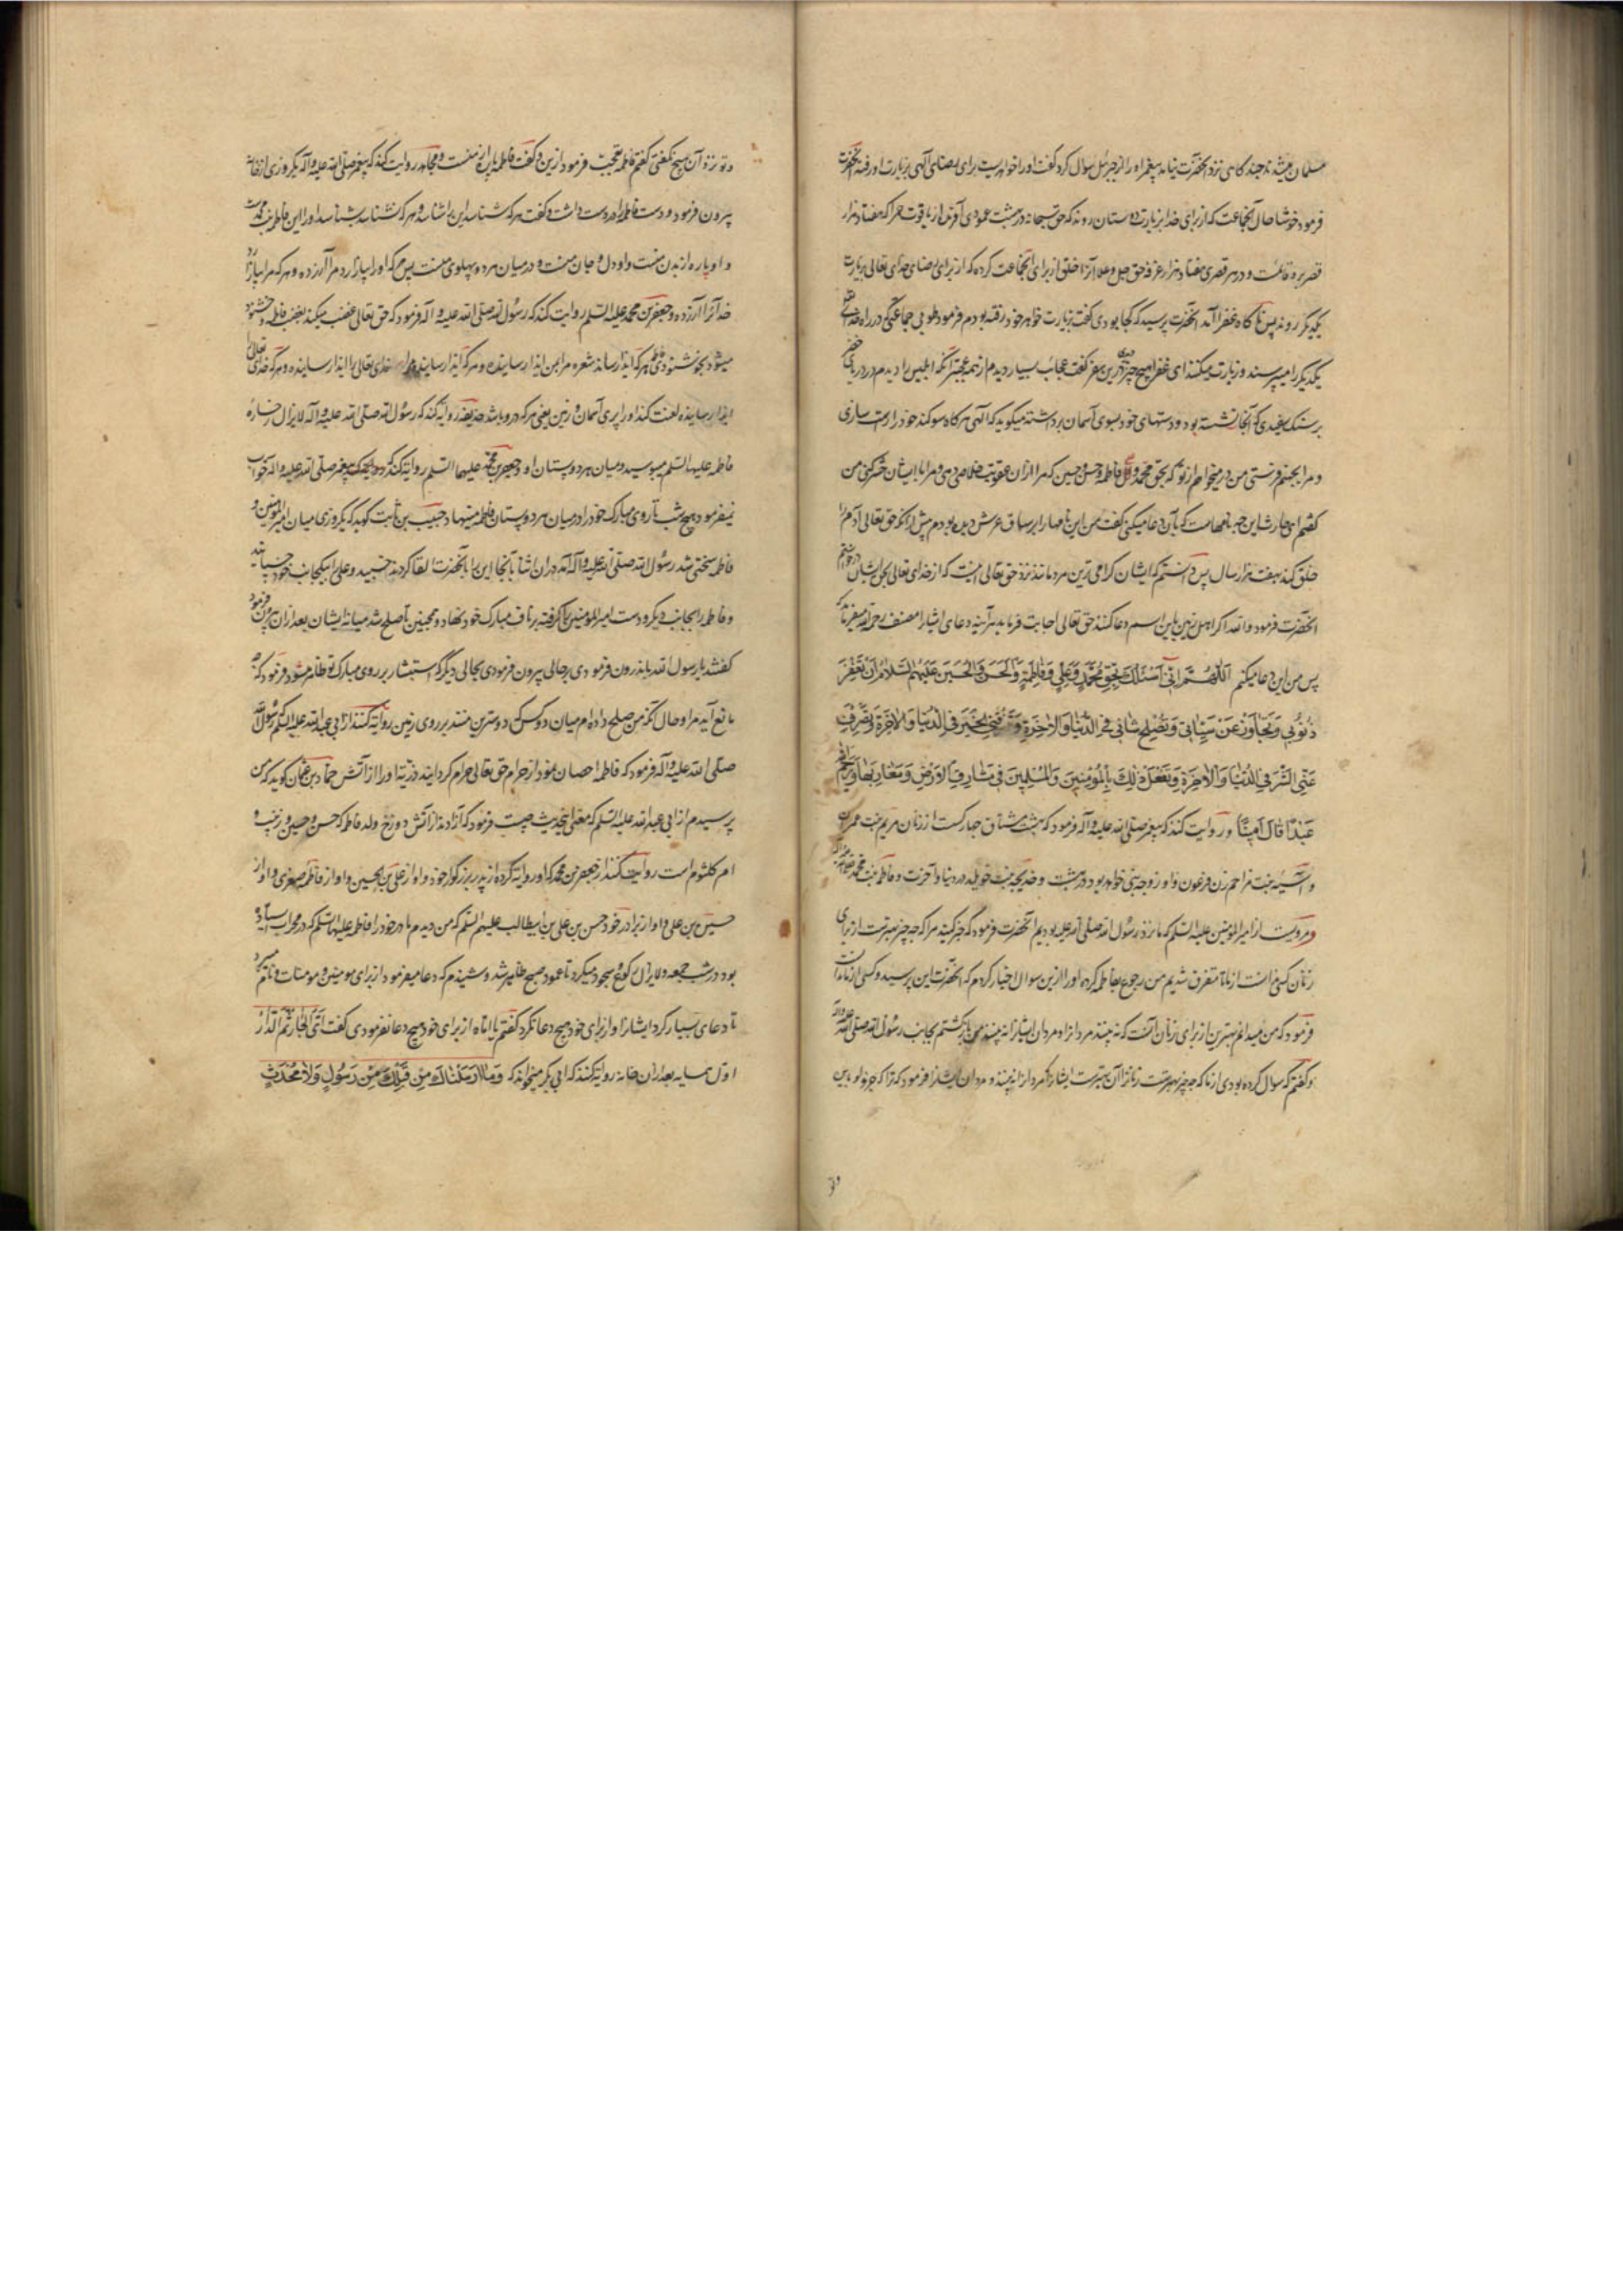 مسلمان میشد تا چند کاهی نزد آنحضرت نیامد پیغمبر او را از جبرئیل سوال کرد گفت او را خواهریست برای رضای آلهی بزیارت او رفته آنحضرت
فرمود خوشا حال آنجماعت که از برای خدا بزیارت دوستان روند که حق سبحانه در بهشت عمودی آفریند از یاقوت حمرا که هفتاد هزار
قصر برو قائمست و در هر قصری هفتاد هزار غرفه حق جل و علا آنرا خلق از برای آنجماعت کرده که از برای رضای خدای تعالی بزیارت
یکدیگر روند پس ناکاه عفرا آمد آنحضرت پرسید که کجا بودی گفت بزیارت خواهر خود رفته بودم فرمود طوبی جماعتی که در راه خدای
یکدیگر را میپرسند و زیارت میکنند ای عفرا هیچ چیز دیدی درین سفر گفت عجائب بسیار دیدم از همه عجیبتر آنکه ابلیس را دیدم در دریای
بر سنک سفیدی که آنجا نشسته بود و دستهای خود بسوی آسمان برداشته میکوید که الهی هر کاه سوکند خود را راست سازی
و مرا بجهنم فرستی من در میخواهم از تو که بحق محمد و علی و فاطمه و حسن و حسین که مرا از آن عقوبت خلاصی دهی و مرا با ایشان حشر کنی من
گفتم ای حارث این چه نامهاست که بآن دعا میکنی گفت من این نامها را بر ساق عرش دیده بودم پیش از آنکه حق تعالی آدم را
خلق کند بهفت هزار سال پس دانستم که ایشان کرامی ترین مردمانند نزد حق تعالی اینست که از خدای تعالی بحق ایشان
آنحضرت فرمود والله اکر اهل زمین باین اسم دعا کنند حق تعالی اجابت فرماید هر آینه دعای ایشانرا مصنف رحمه الله میفرماید که
پس من این دعا میکنم اَللّٰهُمَّ اِنّی اَسْئَلُكَ بِحَقِّ مُحَمَّدٍ وَعَلِیٍّ وَفَاطِمَةَ وَالْحَسَنِ وَالْحُسَیْنِ عَلَیْهِمُ السَّلَامُ اَنْ تَغْفِرَ
ذُنُوبِی وَتَجَاوَزَ عَنْ سَیِّئَاتِی وَتُصْلِحَ شَانِی فِی الدُّنْیَا وَالْاٰخِرَةِ وَتَرْزُقَنِی الْخَیْرَ فِی الدُّنْیَا وَالْاٰخِرَةِ وَتَصْرِفَ
عَنِّی الشَّرَّ فِی الدُّنْیَا وَالْاٰخِرَةِ وَتَفْعَلَ ذٰلِكَ بِالْمُؤْمِنِینَ وَالْمُسْلِمِینَ فِی مَشَارِقِ الْاَرْضِ وَمَغَارِبِهَا وَیَرْحَمُ اللهُ
عَبْدًا قَالَ اٰمِینًا و روایت کنند که پیغمبر صلی الله علیه و آله فرمود که بهشت مشتاق چهار کست از زنان مریم بنت عمران
و آسیه بنت مزاحم زن فرعون و او زوجه نبی خواهد بود در بهشت و خدیجه بنت خویلد در دنیا و آخرت و فاطمه بنت محمد
و مرویست از امیرالمؤمنین علیه السلم که ما نزد رسول الله صلی الله علیه بودیم آنحضرت فرمود که خبر کنید مرا که چه چیز بهترست از برای
زنان کسی ندانست از ما تا متفرق شدیم من رجوع بفاطمه کرده او را ازین سوال اخبار کردم که آنحضرت این پرسید و کسی از ما ندانست
فرمود که من میدانم بهترین از برای زنان آنست که نه بینند مردان را و مردان ایشانرا نه بینند من بازکشتم بجانب رسول الله صلی الله علیه و آله
و گفتم که سوال کرده بودی از ما که چه چیز بهترست زنانرا آن بهترست ایشانرا که مردانرا نه بینند و مردان ایشانرا فرمود که ترا که خبر داد باین
و تو نزد آن هیچ نگفتی گفتم فاطمه تعجب فرمود ازین و گفت فاطمه پاره از منست و مجاهد روایت کند که پیغمبر صلی الله علیه و آله یکروزی از خانه
بیرون فرمود و دست فاطمه در دست داشت و گفت هر که شناسد این را شناسد و هر که نشناسد بشناسد او را این فاطمه بنت محمدست
و او پاره از بدن منست و او دل و جان منست و در میان هر دو پهلوی منست پس هر که او را بیازارد مرا آزرده و هر که مرا بیازارد
خدایرا آزرده و جعفر بن محمد علیه السلم روایت کند که رسول الله صلی الله علیه و آله فرمود که حق تعالی غضب میکند بغضب فاطمه و خشنود
میشود بخوشنودی فاطمه هر که ایذا رساند شعره مرا بمن ایذا رسانیده و هر که ایذا رسانید مرا خدای تعالی را ایذا رسانیده و هر که خدای تعالی
ایذا رسانیده لعنت کند او را بپری آسمان و زمین یعنی هر که درو باشد حذیفه روایه کند که رسول الله صلی الله علیه و آله لایزال رخساره
فاطمه علیها السلم میبوسید و میان هر دو پستان او و جعفر بن محمد علیهما السلم روایه کند که پیغمبر صلی الله علیه و آله خواب
نمیفرمود هیچ شب تا روی مبارک خود را در میان هر دو پستان فاطمه مینهاد حبیب بن ثابت کوید که یکروزی میان امیرالمؤمنین و
فاطمه سخنی شد رسول الله صلی الله علیه و آله آمد در آن اثنا بآنجا این را بآنحضرت القا کردند خسپید و علی را بیکجانب خود خسپانید
و فاطمه را بجانب دیکر و دست امیرالمؤمنین را کرفته بر ناف مبارک خود نهاد و همچنین تا صلح شد میانه ایشان بعد از آن بیرون فرمود
گفتند یا رسول الله باندرون فرمودی بر حالی بیرون فرمودی بحالی دیکر که استبشار بر روی مبارک تو ظاهر میشود فرمود که چه
مانع آید مرا و حال آنکه من صلح داده ام میان دو کس که دوسترین منند بر روی زمین روایه کنند از ابی عبدالله علیه السلم که رسول الله
صلی الله علیه و آله فرمود که فاطمه احصان نمود از حرام حق تعالی حرام کردانید ذریة او را از آتش حماد بن عثمان کوید که من
پرسیدم از ابی عبدالله علیه السلم که معنی این حدیث چیست فرمود که آزادند از آتش دوزخ ولد فاطمه که حسن و حسین و زینب و
ام کلثوم است روایت کنند از جعفر بن محمد که او روایه کرده از پدر بزرکوار خود و او از علی بن الحسین و او از فاطمه صغری و او از
حسین بن علی و او از برادر خود حسن بن علی بن ابیطالب علیهم السلم که من دیدم مادر خود را فاطمه علیها السلم که در محراب ایستاده
بود در شب جمعه و لایزال رکوع و سجود میکرد تا عمود صبح ظاهر شد و شنیدم که دعا میفرمود از برای مومنین و مومنات و نام میبرد
تا دعای بسیار کرد ایشانرا و از برای خود هیچ دعا نکرد گفتم یا اماه از برای خود هیچ دعا نفرمودی گفت ای بنی الجار ثم الدار
اول همسایه بعد از آن خانه روایه کنند که ابی بکر میخواند که وَمَا اَرْسَلْنَاكَ مِنْ قَبْلِكَ مِنْ رَسُولٍ وَلَا مُحْدَثٍ